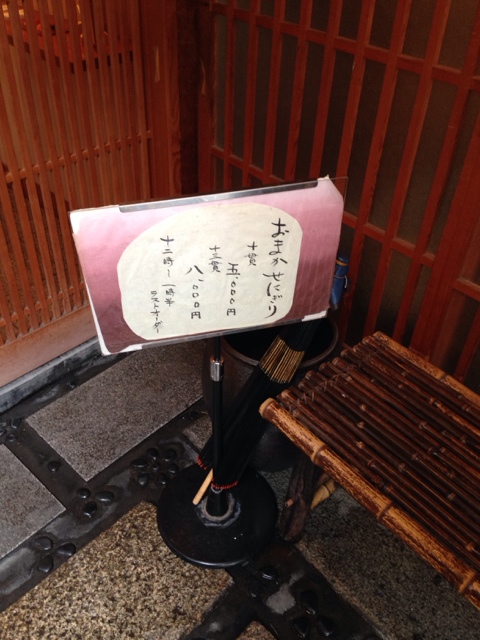 おまかせにぎり
十貫
五.000円
十三貫
八.000円
十二時〜一時半
ラストオーダー